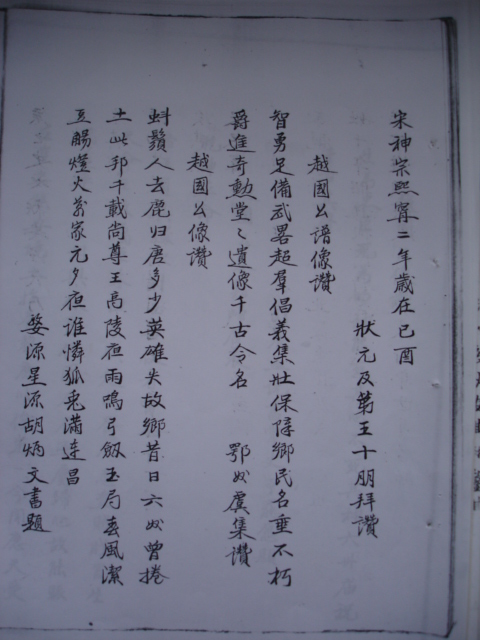 宋神宗熙甯二年歲在己酉
狀元及第王十朋拜讚
越國公譜像讚
智勇足備武畧超羣倡義集壯保障鄉民名垂不朽
爵進奇勳堂〻遺像千古令名 鄂州虞集讚
越國公像讚
蚪鬚人去鹿归唐多少英雄失故鄉昔日六州曾捲
土此邦千載尚尊王禹陵夜雨鳴弓劔玉局春風潔
豆觴燈火萬家元夕夜誰憐狐兎滿連昌
婺源星源胡炳文書題